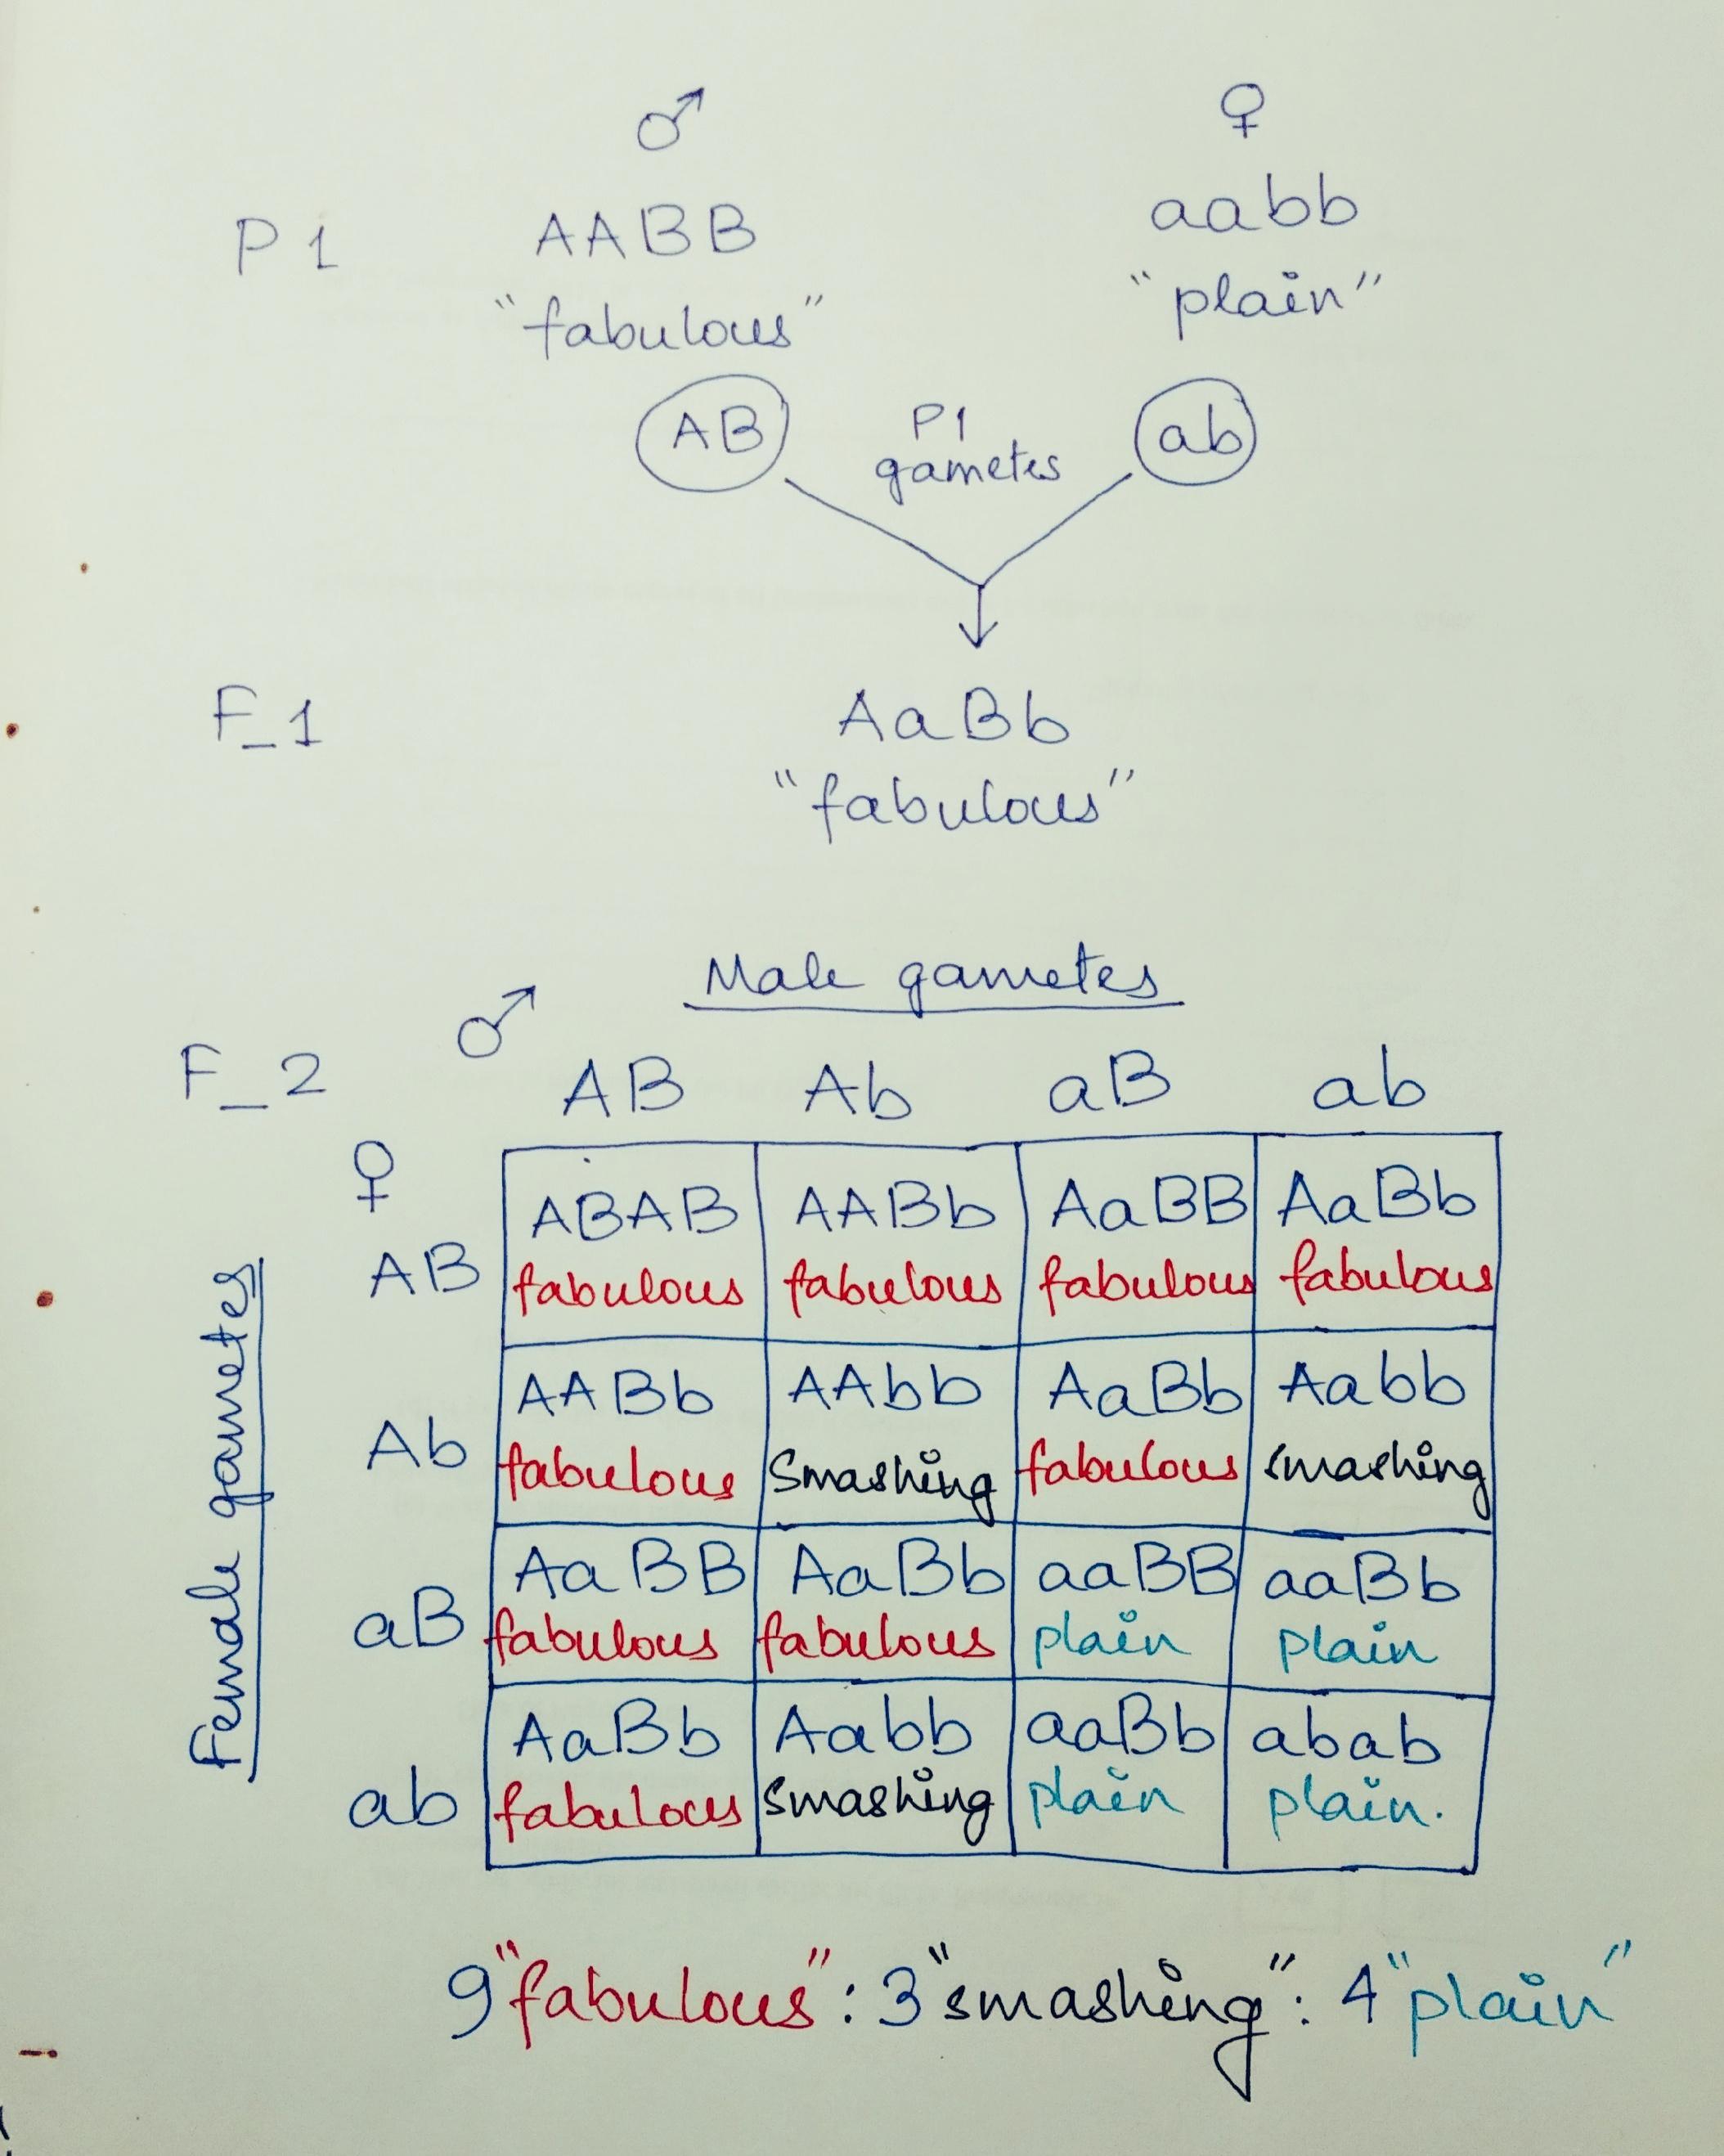 ♂ ♀
P1 AABB aabb
"fabulous" "plain"
AB P1 gametes ab
F_1 AaBb
"fabulous"
Male gametes
F_2 ♂ AB Ab aB ab
♀
Female gametes
AB ABAB AABb AaBB AaBb
fabulous fabulous fabulous fabulous
Ab AABb AAbb AaBb Aabb
fabulous Smashing fabulous smashing
aB AaBB AaBb aaBB aaBb
fabulous fabulous plain plain
ab AaBb Aabb aaBb abab
fabulous smashing plain plain.
9 "fabulous" : 3 "smashing" : 4 "plain"